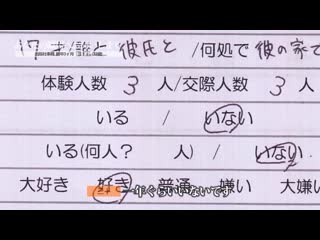 17才/誰と 彼氏と /何処で 彼の家で
体験人数 3 人/交際人数 3 人
いる / いない
いる(何人? 人) / いない
大好き 好き 普通 嫌い 大嫌い
一年ぐらいいないです